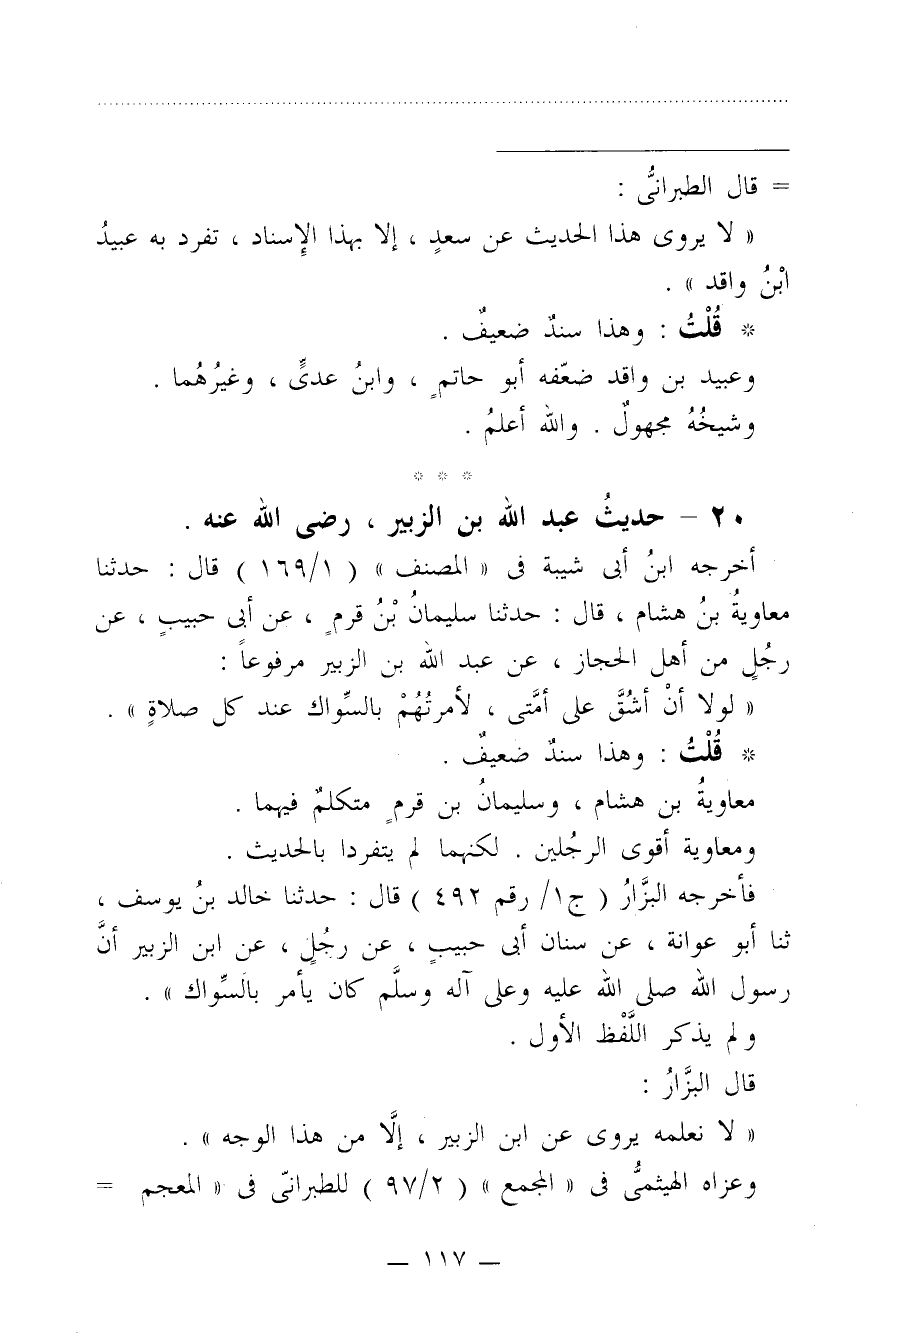 = قال الطبرانىُّ :
« لا يروى هذا الحديث عن سعدٍ ، إلا بهذا الإِسناد ، تفرد به عبيدُ
ابْنُ واقد » .
* قُلْتُ : وهذا سندٌ ضعيفٌ .
وعبيد بن واقد ضعّفه أبو حاتمٍ ، وابنُ عدىٍّ ، وغيرُهُما .
وشيخُهُ مجهولٌ . والله أعلمُ .
* * *
٢٠ – حديثُ عبد الله بن الزبير ، رضى الله عنه .
أخرجه ابنُ أبى شيبة فى « المصنف » ( ١٦٩/١ ) قال : حدثنا
معاويةُ بنُ هشام ، قال : حدثنا سليمانُ بْنُ قرمٍ ، عن أبى حبيبٍ ، عن
رجُلٍ من أهل الحجاز ، عن عبد الله بن الزبير مرفوعاً :
« لولا أنْ أشُقَّ على أمَّتى ، لأمرتُهُمْ بالسِّواك عند كل صلاةٍ » .
* قُلْتُ : وهذا سندٌ ضعيفٌ .
معاويةُ بن هشام ، وسليمانُ بن قرمٍ متكلمٌ فيهما .
ومعاوية أقوى الرجُلين . لكنهما لم يتفردا بالحديث .
فأخرجه البزَّارُ ( ج١/ رقم ٤٩٢ ) قال : حدثنا خالد بنُ يوسف ،
ثنا أبو عوانة ، عن سنان أبى حبيبٍ ، عن رجُلٍ ، عن ابن الزبير أنَّ
رسول الله صلى الله عليه وعلى آله وسلَّم كان يأمر بالسِّواك » .
ولم يذكر اللَّفْظ الأول .
قال البزَّارُ :
« لا نعلمه يروى عن ابن الزبير ، إلَّا من هذا الوجه » .
وعزاه الهيثمىُّ فى « المجمع » ( ٩٧/٢ ) للطبرانىّ فى « المعجم =
— ١١٧ —